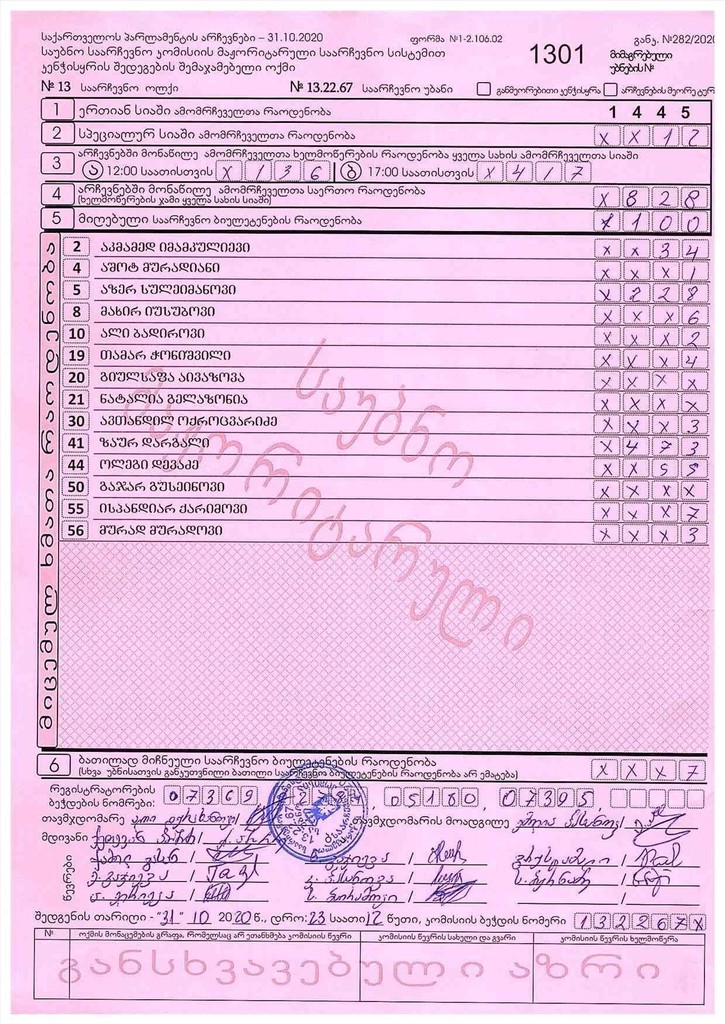 საქართველოს პარლამენტის არჩევნები – 31.10.2020 ფორმა №1-2.106.02 განკ. №282/2020
საუბნო საარჩევნო კომისიის მაჟორიტარული საარჩევნო სისტემით 1301 მიმაგრებული
კენჭისყრის შედეგების შემაჯამებელი ოქმი უბნების№
№ 13 საარჩევნო ოლქი № 13.22.67 საარჩევნო უბანი განმეორებითი კენჭისყრა არჩევნების მეორე ტური
1 ერთიან სიაში ამომრჩეველთა რაოდენობა 1 4 4 5
2 სპეციალურ სიაში ამომრჩეველთა რაოდენობა X X 1 2
3 არჩევნებში მონაწილე ამომრჩეველთა ხელმოწერების რაოდენობა ყველა სახის ამომრჩეველთა სიაში
ა 12:00 საათისთვის X 1 3 6 ბ 17:00 საათისთვის X 4 1 7
4 არჩევნებში მონაწილე ამომრჩეველთა საერთო რაოდენობა X 8 2 8
(ხელმოწერების ჯამი ყველა სახის სიაში)
5 მიღებული საარჩევნო ბიულეტენების რაოდენობა 1 1 0 0
მიცემულ ხმათა რაოდენობა
2 აკმამედ იმამკულიევი X X 3 4
4 აშოტ მურადიანი X X X 1
5 აზერ სულეიმანოვი X 2 2 8
8 მახირ იუსუბოვი X X X 6
10 ალი ბადიროვი X X X 2
19 თამარ ჟონიშვილი X X X 4
20 გიულსაფა აივაზოვა X X X X
21 ნატალია გელაზონია X X X X
30 ავთანდილ ოქროცვარიძე X X X 3
41 ზაურ დარგალი X 4 7 3
44 ოლეგი დევაძე X X 5 5
50 გაჯარ გუსეინოვი X X X X
55 ისპანდიარ ქარიმოვი X X X 7
56 მურად მურადოვი X X X 3
საუბნო
მაჟორიტარული
6 ბათილად მიჩნეული საარჩევნო ბიულეტენების რაოდენობა X X X 7
(სხვა უბნისათვის განკუთვნილი ბათილი საარჩევნო ბიულეტენების რაოდენობა არ ემატება)
რეგისტრატორების
ბეჭდების ნომრები: 07369 05180, 07395
თავმჯდომარე თავმჯდომარის მოადგილე
მდივანი
წევრები
შედგენის თარიღი - "31" 10 2020 წ., დრო: 23 საათი 12 წუთი, კომისიის ბეჭდის ნომერი 132267X
№ ოქმის მონაცემების გრაფა, რომელსაც არ ეთანხმება კომისიის წევრი კომისიის წევრის სახელი და გვარი კომისიის წევრის ხელმოწერა
განსხვავებული აზრი